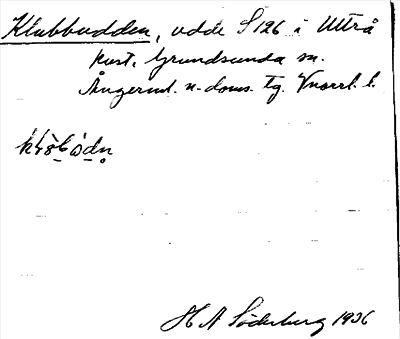 Klubbudden, udde S 126 i Utträ
kust. Grundsunda sn.
Ångerml. n. doms. tg. Vnorrl. l.
H A Söderberg 1936